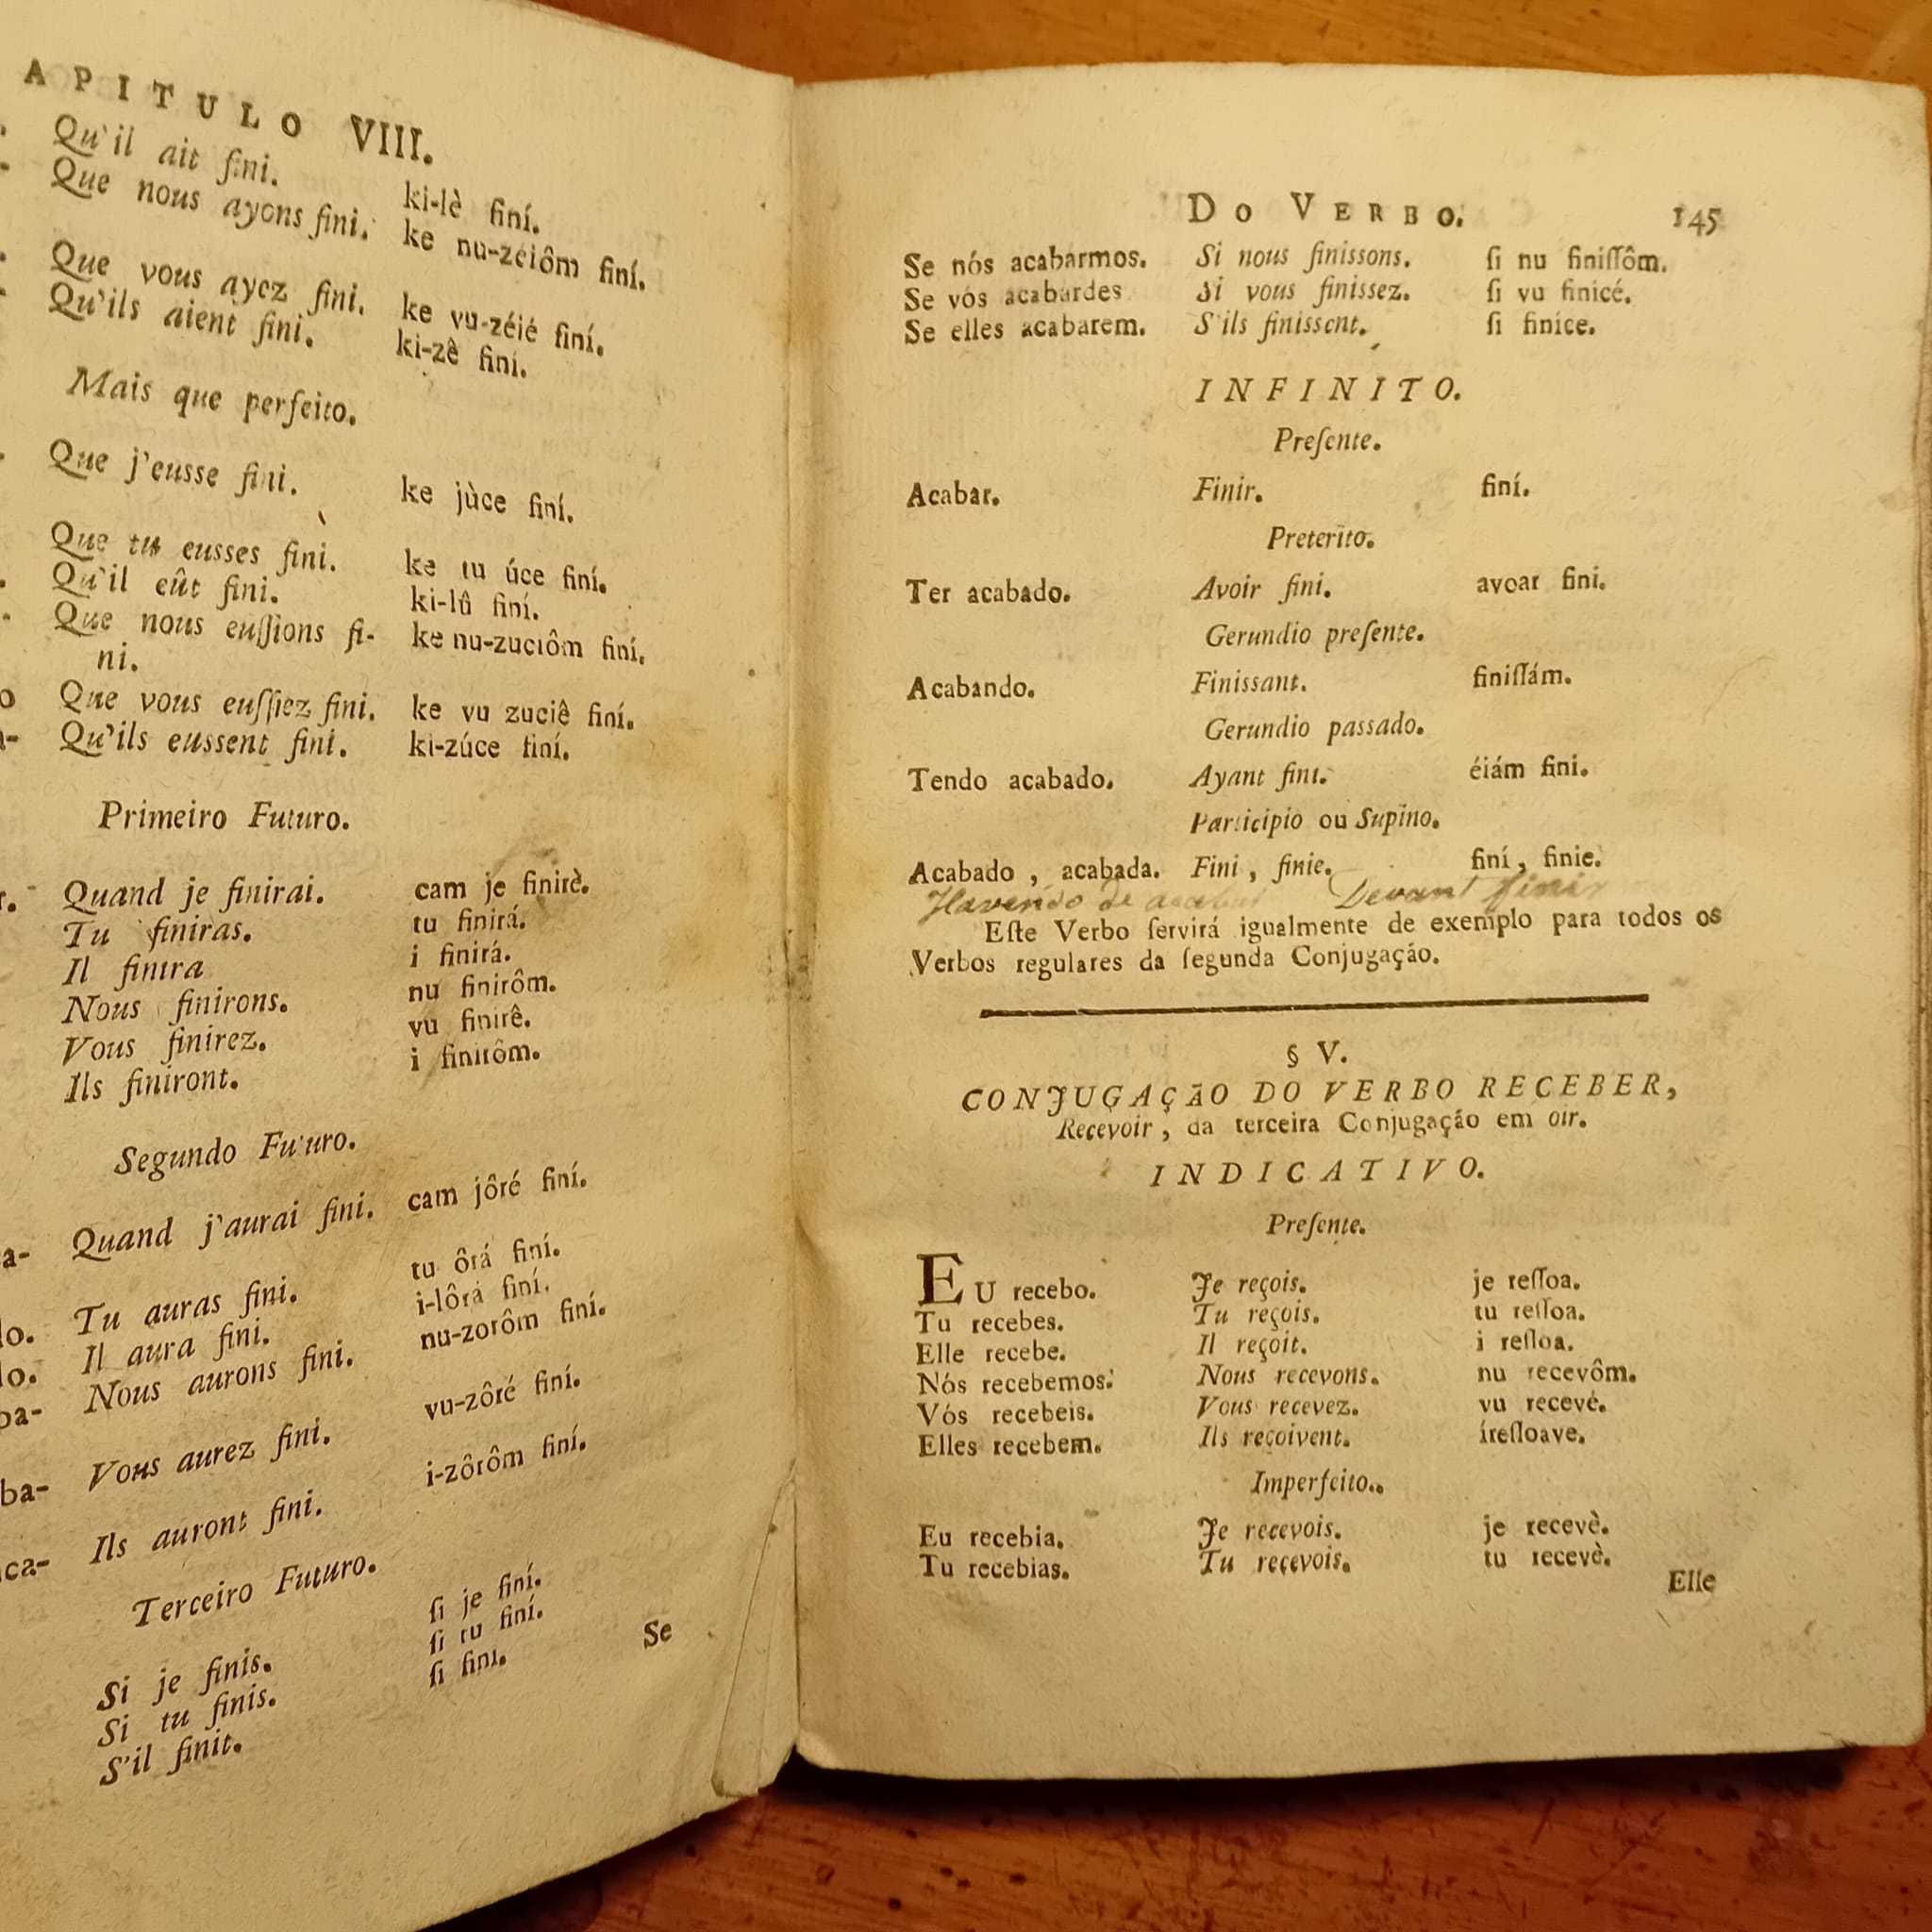 APITULO VIII.
Qu'il ait fini. ki-lè finí.
Que nous ayons fini. ke nu-zéiôm finí.
Que vous ayez fini. ke vu-zéié finí.
Qu'ils aient fini. ki-zê finí.
Mais que perfeito.
Que j'eusse fini. ke jùce finí.
Que tu eusses fini. ke tu úce finí.
Qu'il eût fini. ki-lû finí.
Que nous euſſions fi- ke nu-zuciôm finí.
ni.
o Que vous euſſiez fini. ke vu zuciê finí.
a- Qu'ils eussent fini. ki-zúce finí.
Primeiro Futuro.
r. Quand je finirai. cam je finirè.
Tu finiras. tu finirá.
Il finira i finirá.
Nous finirons. nu finirôm.
Vous finirez. vu finirê.
Ils finiront. i finirôm.
Segundo Futuro.
a- Quand j'aurai fini. cam jôré finí.
do. Tu auras fini. tu ôrá finí.
do. Il aura fini. i-lôrá finí.
ba- Nous aurons fini. nu-zorôm finí.
ba- Vous aurez fini. vu-zôré finí.
ca- Ils auront fini. i-zôrôm finí.
Terceiro Futuro.
Si je finis. ſi je finí.
Si tu finis. ſi tu finí.
S'il finit. ſi finí.
Se
DO VERBO. 145
Se nós acabarmos. Si nous finissons. ſi nu finiſſôm.
Se vós acabardes Si vous finissez. ſi vu finicé.
Se elles acabarem. S'ils finissent. ſi finíce.
INFINITO.
Preſente.
Acabar. Finir. finí.
Preterito.
Ter acabado. Avoir fini. avoar fini.
Gerundio preſente.
Acabando. Finissant. finiſſám.
Gerundio passado.
Tendo acabado. Ayant fini. éiám fini.
Participio ou Supino.
Acabado , acabada. Fini , finie. finí , finie.
Havendo de acabar Devant finir
Eſte Verbo ſervirá igualmente de exemplo para todos os
Verbos regulares da ſegunda Conjugaçáo.
§ V.
CONJUGAÇÃO DO VERBO RECEBER,
Recevoir , da terceira Conjugaçáo em oir.
INDICATIVO.
Preſente.
EU recebo. Je reçois. je reſſoa.
Tu recebes. Tu reçois. tu reſſoa.
Elle recebe. Il reçoit. i reſſoa.
Nós recebemos. Nous recevons. nu recevôm.
Vós recebeis. Vous recevez. vu recevé.
Elles recebem. Ils reçoivent. íreſſoave.
Imperfeito.
Eu recebia. Je recevois. je recevè.
Tu recebias. Tu recevois. tu recevè.
Elle